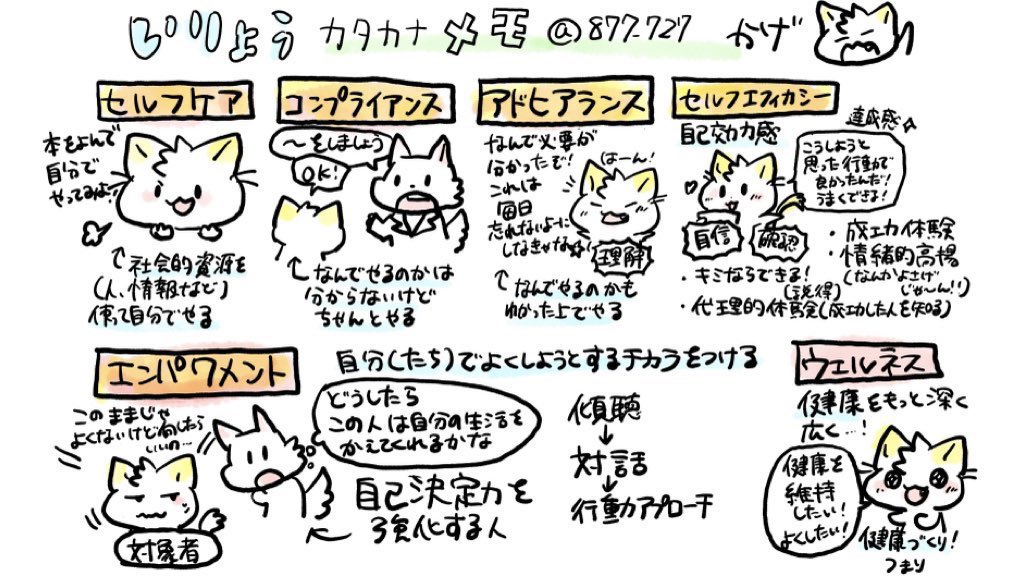 いりょう カタカナ メモ @877_727 かげ
セルフケア
本をよんで
自分で
やってみよ!!
↑社会的資源を
(人、情報など)
使って自分でやる
コンプライアンス
〜をしましょう
OK!
↑なんでやるのかは
分からないけど
ちゃんとやる
アドヒアランス
なんで必要が
分かったぞ!
これは
毎日
忘れないように
しなきゃな☆
はーん!
理解
↑なんでやるのかも
わかった上でやる
セルフエフィカシー
自己効力感
達成感☆
こうしようと
思った行動で
良かったんだ!
うまくできる!
自信
確認
・成工力体験
・情緒的高揚
(なんかよさげ
じゃ〜ん!!)
・キミならできる!
(説得)
・代理的体験(成功した人を知る)
エンパワメント
自分(たち)でよくしようとするチカラをつける
このままじゃ
よくないけど何したら
いいの…
対象者
どうしたら
この人は自分の生活を
かえてくれるかな
自己決定力を
強化する人
傾聴
↓
対話
↓
行動アプローチ
ウェルネス
健康をもっと深く
広く…!
健康を
維持
したい!
よくしたい!
健康づくり!
つまり